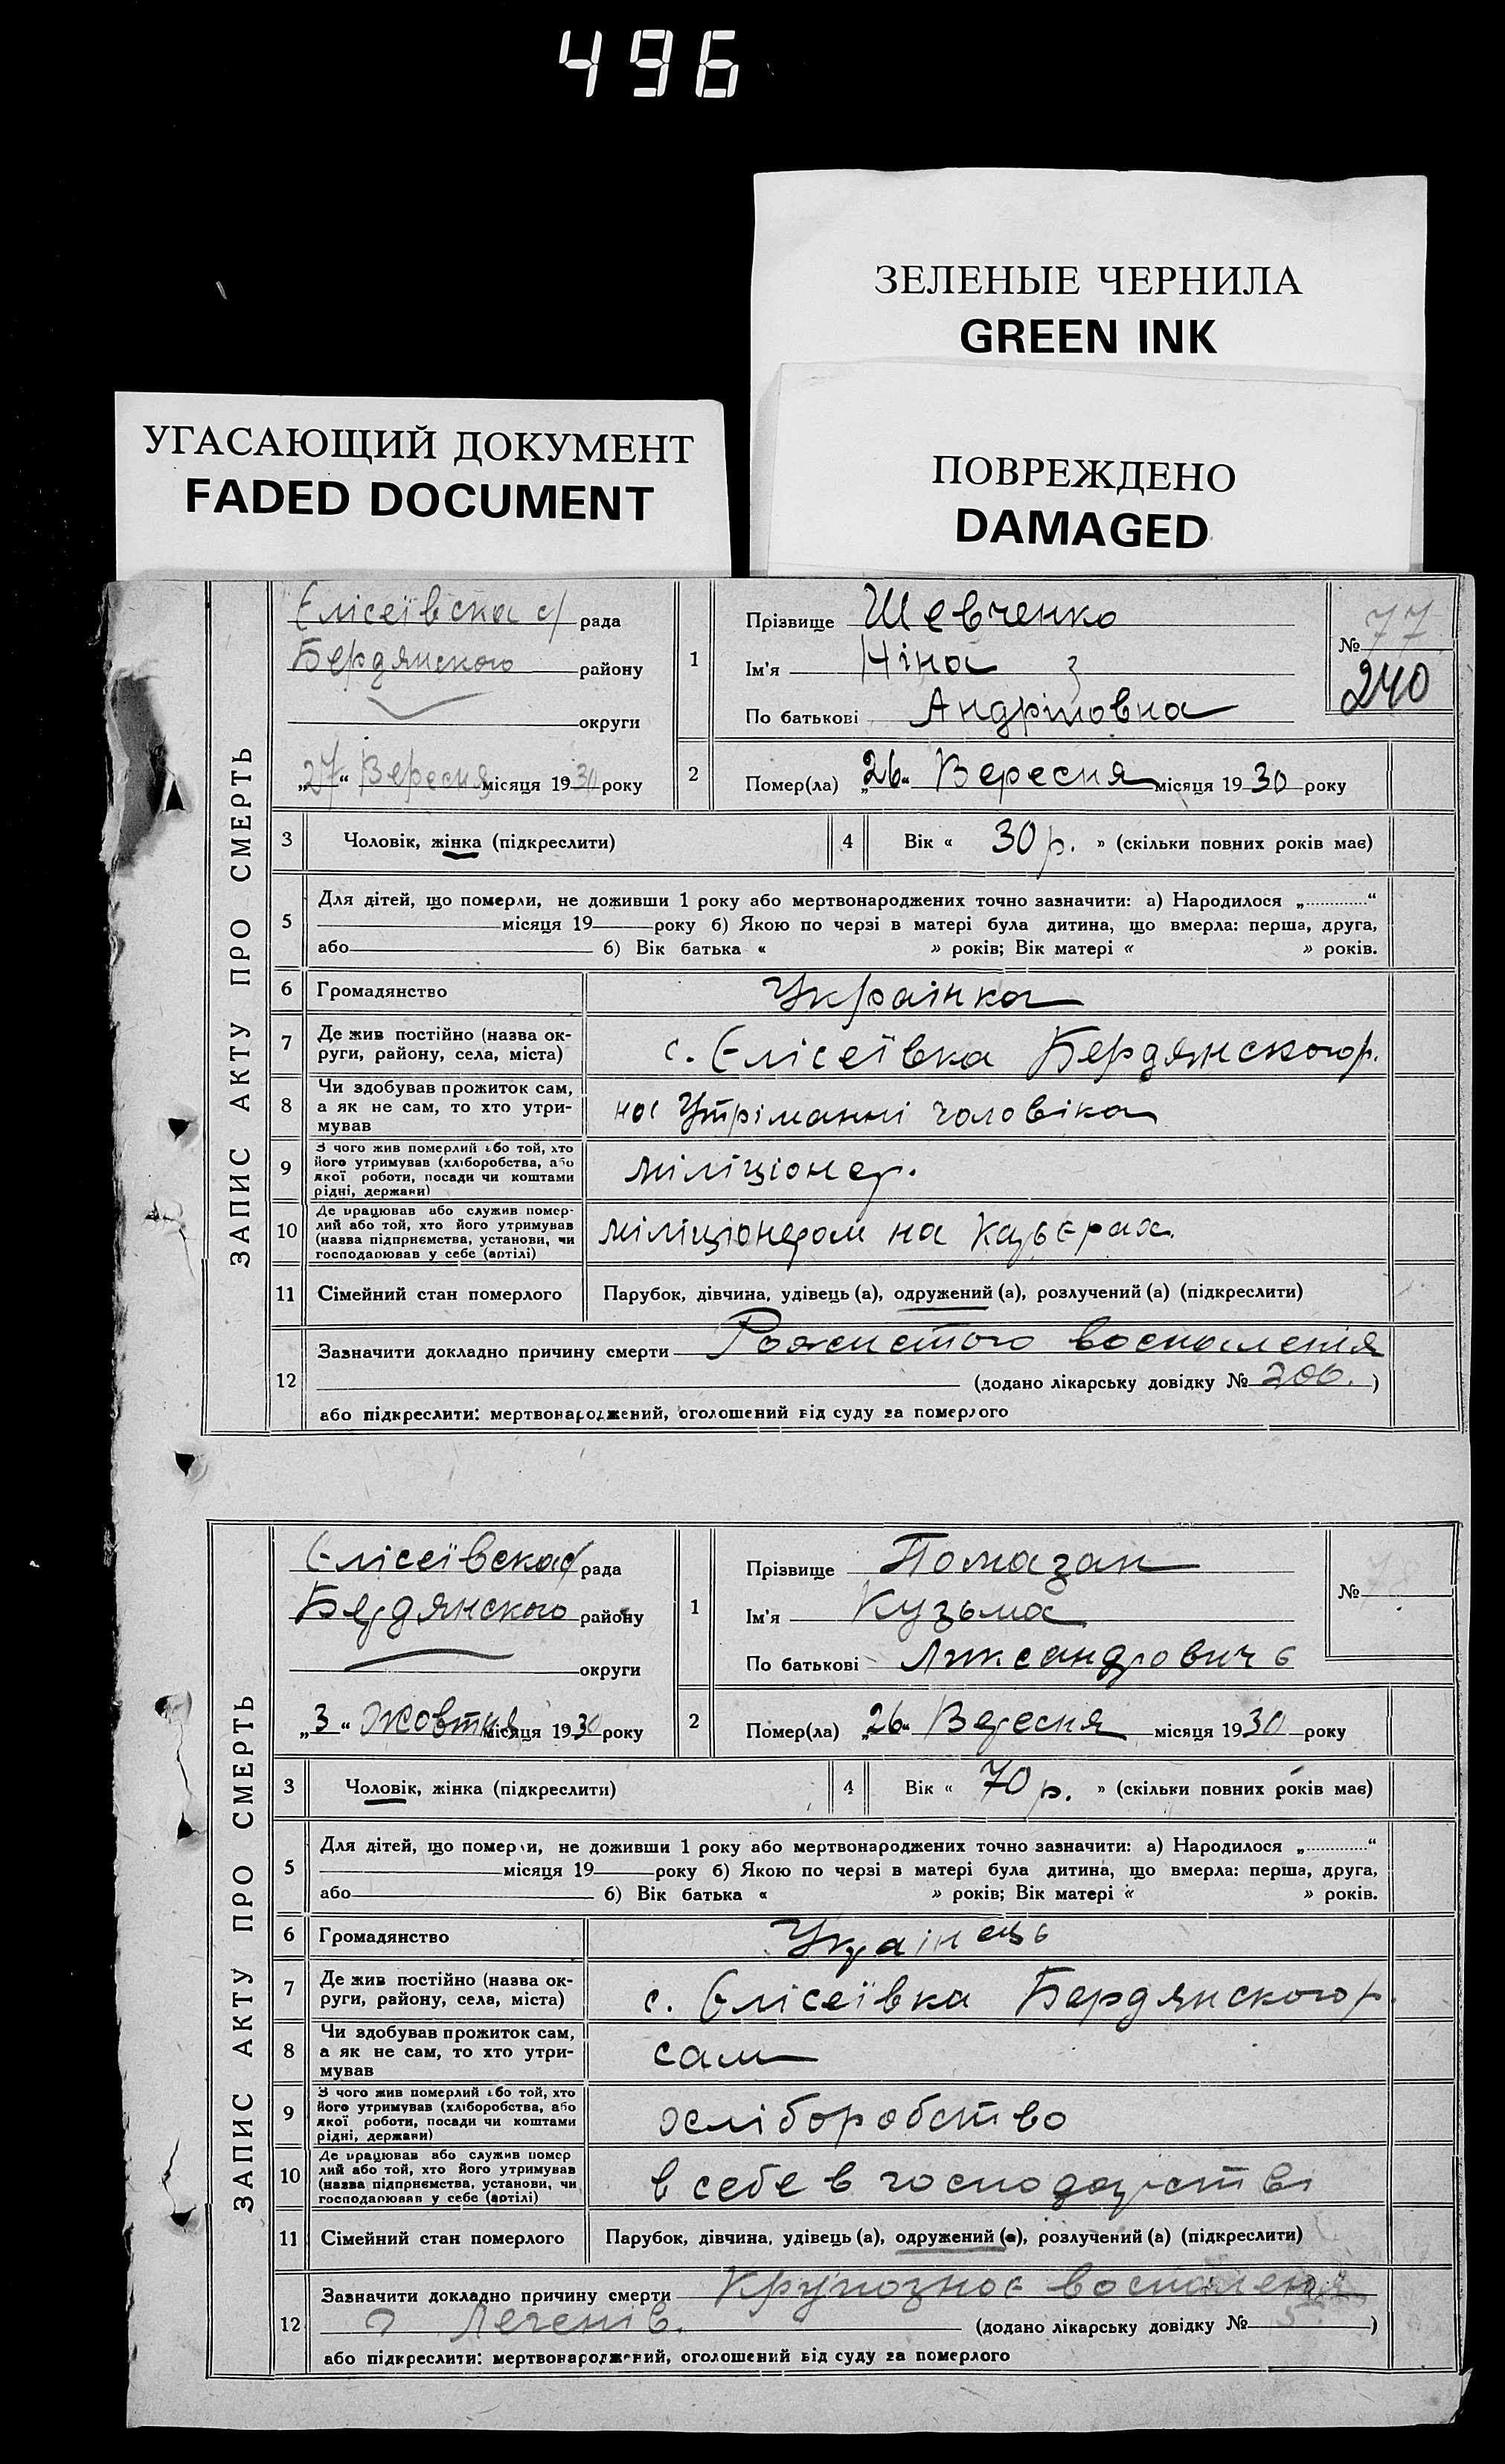 496
ЗЕЛЕНЫЕ ЧЕРНИЛА
GREEN INK
УГАСАЮЩИЙ ДОКУМЕНТ
FADED DOCUMENT
ПОВРЕЖДЕНО
DAMAGED
ЗАПИС АКТУ ПРО СМЕРТЬ
Єлісеївска с/ рада
Бердянского району
округи
„27“ Вересня місяця 1930 року
1
Прізвище Шевченко
Ім'я Ніна
По батькові Андріювна
№ 77
240
2
Помер(ла) „26“ Вересня місяця 1930 року
3 Чоловік, жінка (підкреслити)
4 Вік « 30 р. » (скільки повних років має)
5 Для дітей, що померли, не доживши 1 року або мертвонароджених точно зазначити: а) Народилося „............“
місяця 19 року б) Якою по черзі в матері була дитина, що вмерла: перша, друга,
або б) Вік батька « » років; Вік матері « » років.
6 Громадянство Українка
7 Де жив постійно (назва ок-
руги, району, села, міста)
с. Єлісеївка Бердянского р.
8 Чи здобував прожиток сам,
а як не сам, то хто утри-
мував
на Утріманні чоловіка
9 З чого жив померлий або той, хто
його утримував (хліборобства, або
якої роботи, посади чи коштами
рідні, держави)
міліціонер.
10 Де працював або служив помер-
лий або той, хто його утримував
(назва підприємства, установи, чи
господарював у себе (артілі)
міліціонером на Карьєрах.
11 Сімейний стан померлого Парубок, дівчина, удівець (а), одружений (а), розлучений (а) (підкреслити)
12 Зазначити докладно причину смерти Рожистого воспаленія
(додано лікарську довідку № 206. )
або підкреслити: мертвонароджений, оголошений від суду за померлого
ЗАПИС АКТУ ПРО СМЕРТЬ
Єлісеївска с/ рада
Бердянского району
округи
„3“ Жовтня місяця 1930 року
1
Прізвище Помазан
Ім'я Кузьма
По батькові Ликсандрович
№
2
Помер(ла) „26“ Вересня місяця 1930 року
3 Чоловік, жінка (підкреслити)
4 Вік « 70 р. » (скільки повних років має)
5 Для дітей, що померли, не доживши 1 року або мертвонароджених точно зазначити: а) Народилося „............“
місяця 19 року б) Якою по черзі в матері була дитина, що вмерла: перша, друга,
або б) Вік батька « » років; Вік матері « » років.
6 Громадянство Українець
7 Де жив постійно (назва ок-
руги, району, села, міста)
с. Єлісеївка Бердянского р.
8 Чи здобував прожиток сам,
а як не сам, то хто утри-
мував
сам
9 З чого жив померлий або той, хто
його утримував (хліборобства, або
якої роботи, посади чи коштами
рідні, держави)
хліборобство
10 Де працював або служив помер
лий або той, хто його утримував
(назва підприємства, установи, чи
господарював у себе (артілі)
в себе в господарстві
11 Сімейний стан померлого Парубок, дівчина, удівець (а), одружений (а), розлучений (а) (підкреслити)
12 Зазначити докладно причину смерти Крупозноє воспаленія
Легенів. (додано лікарську довідку № )
або підкреслити: мертвонароджений, оголошений від суду за померлого